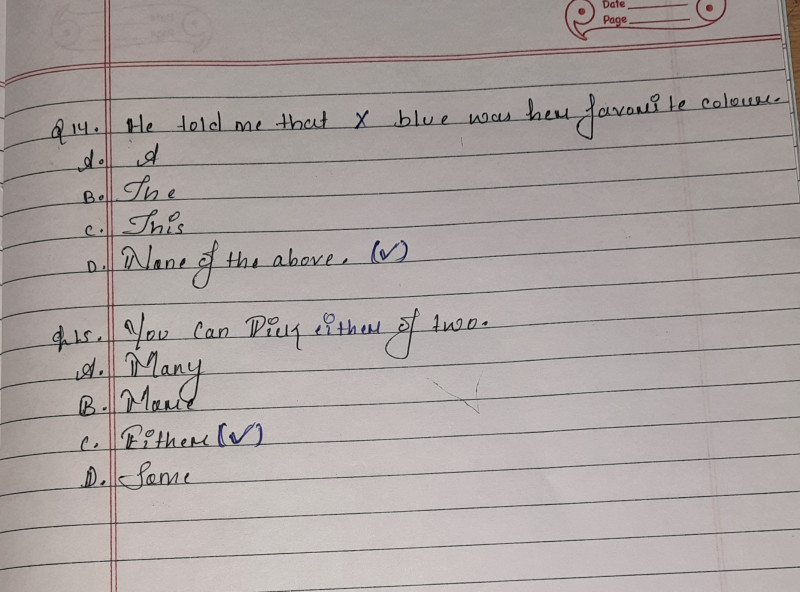 Date
Page
Q14. He told me that X blue was her favourite colour.
A. A
B. The
C. This
D. None of the above. (✓)
Q15. You can Pick either of two.
A. Many
B. More
C. Either (✓)
D. Some